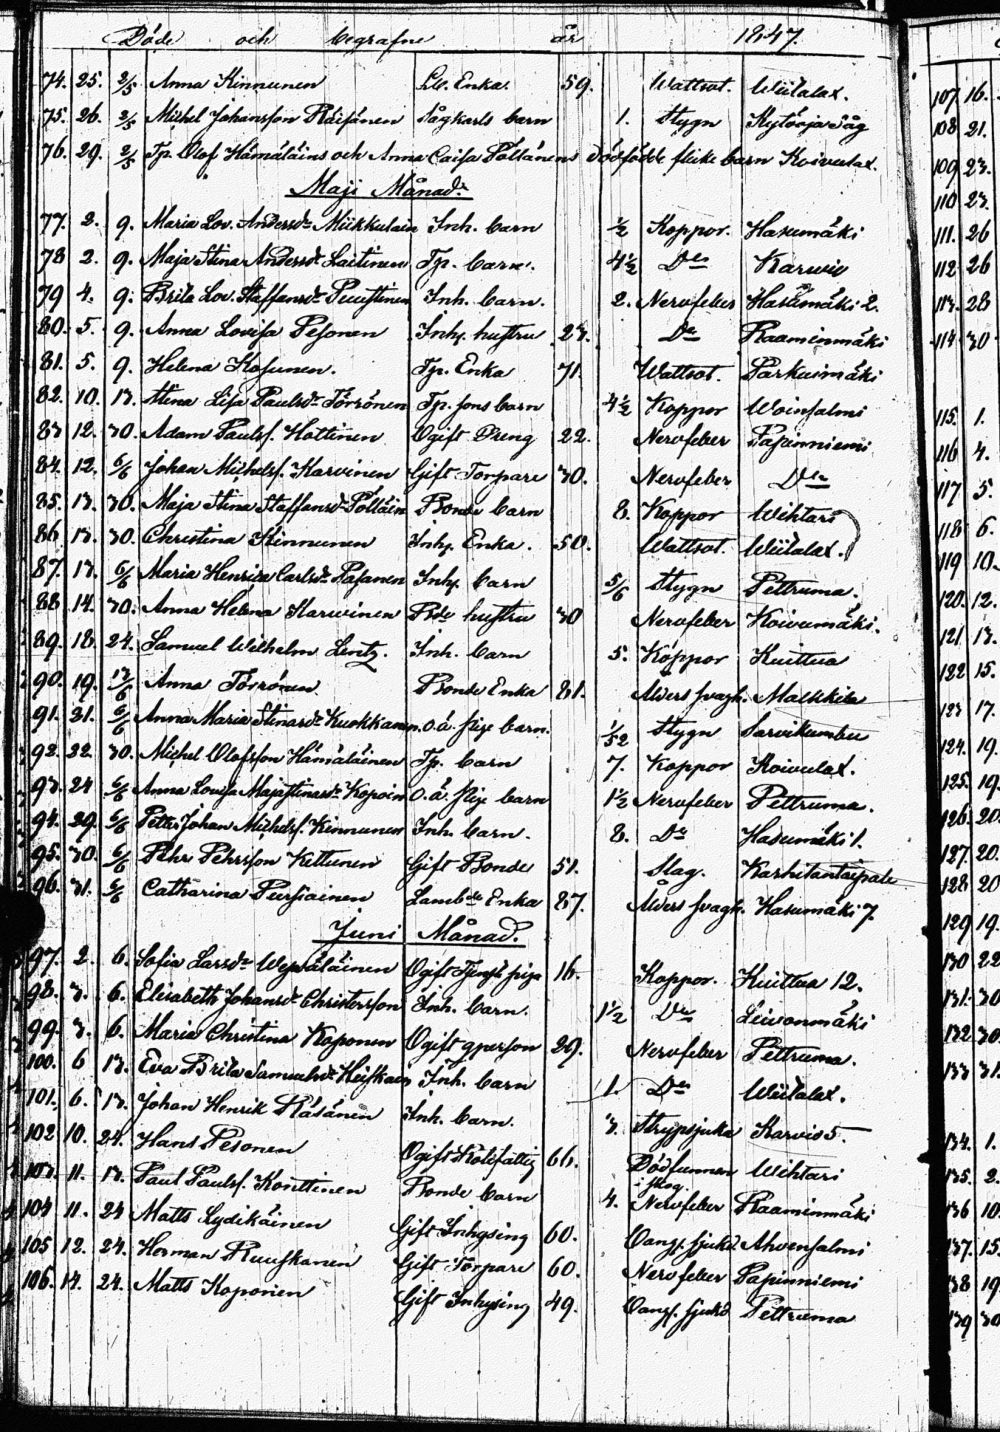 Döde och begrafne år 1847.
74. 25. 2/5 Anna Kinnunen Lk. Enka. 59. Wattsot. Wiitalax.
75. 26. 2/5 Michel Johansson Räisänen Sågkarls barn 1. Stygn Kytöoja Såg
76. 29. 2/5 Tp. Olof Hämäläins och Anna Caisa Pöllänens Dödfödde flicke barn Koivulax.
Maji Månad.
77. 2. 9. Maria Lov. Andersdr Miikkulain Inh. barn ½ Koppor. Hasumäki
78 2. 9. Maja Stina Andersdr Laitinen Tp. barn. 4½ Do Karwio
79 4. 9. Brita Lov. Staffansdr Puustinen Inh. barn. 2. Nervfeber Hasumäki 2.
80. 5. 9. Anna Lovisa Pesonen Inhs. hustru 23. Do Raaminmäki
81. 5. 9. Helena Kosunen. Tp. Enka 71. Wattsot. Parkuimäki
82. 10. 13. Stina Lisa Paulsdr Törrönen Tp. sons barn 4½ Koppor Woinsalmi
83 12. 30. Adam Paulss. Hottinen Ogift Dreng 22. Nervfeber Papinniemi
84. 12. 6/6 Johan Michelss. Karvinen Gift Torpare 30. Nervfeber Do
85. 13. 30. Maja Stina Staffansdr Pölläin Bonde barn 8. Koppor Wihtari
86 13. 30. Christina Kinnunen Inhs. Enka. 50. Wattsot. Wiitalax.
87. 13. 6/6 Maria Henrica Carlsdr Pasanen Inhs. barn 5/6 Stygn Pettruma.
88. 14. 30. Anna Helena Karwinen Bde hustru 30 Nervfeber Koivumäki.
89. 18 24. Samuel Wilhelm Lentz. Inh. barn 5. Koppor Kuittua
90. 19. 13/6 Anna Törrönen Bonde Enka 81. Ålders svagh. Malkkila
91. 21. 6/6 Anna Maria Stinasdr Kuokkanen. o.ä. flice barn. 1/52 Stygn Sarvikumbu
92. 22. 30. Michel Olofsson Hämäläinen Tp. barn 7. Koppor Koivulax.
93. 24 6/6 Anna Lovisa Majastinasdr Kopoin o.ä. flice barn 1½ Nervfeber Pettruma.
94. 29. 6/6 Petter Johan Michelss. Kinnunen Inh. barn. 8. Do Hasumäki 1.
95. 30. 6/6 Pehr Pehrsson Kettunen Gift Bonde 51. Slag. Karhitantaipale
96. 31. 6/6 Catharina Pursiainen Lambde Enka 87. Ålders svagh. Hasumäki 7.
Juni Månad.
97. 2. 6. Sofia Larsdr Wepsäläinen Ogift Tjenste piga 16. Koppor. Kuittua 12.
98. 3. 6. Elisabeth Johansdr Christersson Inh. barn. 1½ Do Leivonmäki
99. 3. 6. Maria Christina Koponen Ogift qperson 29. Nervfeber Pettruma.
100. 6 13. Eva Brita Samuelsdr Heiskain Inh. barn 1. Do Wiitalax.
101. 6. 13. Johan Henrik Räsänen Inh. barn. 3. Strypsjuka Karvio 5.
102 10. 24. Hans Pesonen Ogift Rotefattig 66. Dödfunnen i skog. Wihtari
103. 11. 13. Paul Paulss. Konttinen Bonde barn 4. Nervfeber Raaminmäki
104 11. 24 Matts Lydikäinen Gift Inhysing 60. Vanl. sjukd. Ahvensalmi
105 12. 24. Herman Ruuskanen Gift Torpare 60. Nervfeber Papinniemi
106. 14. 24. Matts Koponen Gift Inhysing 49. Vanl. sjukd Pettruma
107 16.
108 21.
109 23.
110 23.
111. 26
112. 26
113. 28
114 30
115. 1.
116 4.
117 5.
118 6.
119 10.
120. 12.
121 13.
122 15.
123 17.
124. 19.
125. 19.
126. 20.
127. 20.
128 20
129 19.
130 22
131. 30
132 30.
133 31.
134. 1.
135. 2.
136 10.
137. 15.
138 19.
139 30